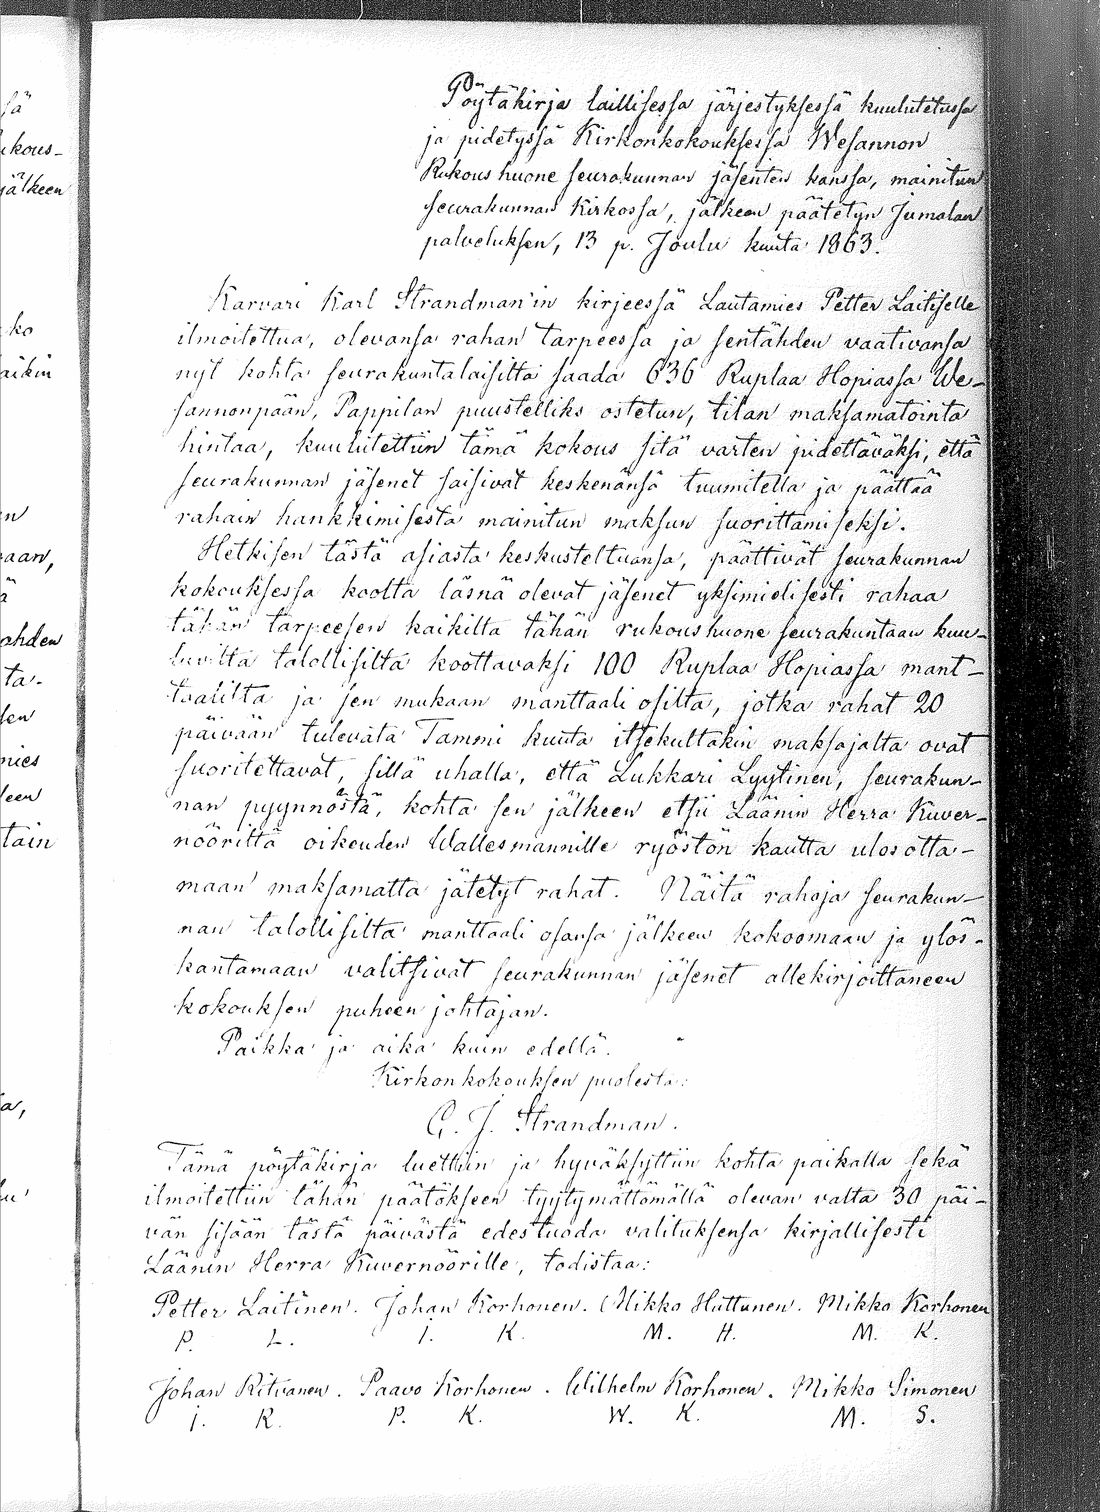 sä
ukous-
jälkeen
ko
aikin
en
vaan,
ä
ahden
ta-
sen
mies
leen
tain
a,
Pöytäkirja laillisessa järjestyksessä kuulutetussa
ja pidetyssä Kirkonkokouksessa Wesannon
Rukoushuone seurakunnan jäsenten kanssa, mainitun
seurakunnan Kirkossa, jälkeen päätetyn Jumalan
palveluksen, 13 p. Joulu kuuta 1863.
Karvari Karl Strandman'in kirjeessä Lautamies Petter Laitiselle
ilmoitettua, olevansa rahan tarpeessa ja sentähden vaativansa
nyt kohta seurakuntalaisilta saada 636 Ruplaa Hopiassa We-
sannonpään, Pappilan puustelliks ostetun, tilan maksamatointa
hintaa, kuulutettiin tämä kokous sitä varten pidettäväksi, että
seurakunnan jäsenet saisivat keskenänsä tuumitella ja päättää
rahain hankkimisesta mainitun maksun suorittamiseksi.
Hetkisen tästä asiasta keskusteltuansa, päättivät seurakunnan
kokouksessa koolla läsnä olevat jäsenet yksimielisesti rahaa
tähän tarpeesen kaikilta tähän rukoushuone seurakuntaan kuu-
luvilta talollisilta koottavaksi 100 Ruplaa Hopiassa mant-
taalilta ja sen mukaan manttaali osilta, jotka rahat 20
päivään tulevata Tammi kuuta itsekultakin maksajalta ovat
suoritettavat, sillä uhalla, että Lukkari Lyytinen, seurakun-
nan pyynnöstä, kohta sen jälkeen etsii Läänin Herra Kuver-
nööriltä oikeuden Wallesmannille ryöstön kautta ulosotta-
maan maksamatta jätetyt rahat. Näitä rahoja seurakun-
nan talollisilta manttaali osansa jälkeen kokoomaan ja ylös-
kantamaan valitsivat seurakunnan jäsenet allekirjoittaneen
kokouksen puheen johtajan.
Paikka ja aika kuin edellä.
Kirkonkokouksen puolesta:
C. J. Strandman.
Tämä pöytäkirja luettiin ja hyväksyttiin kohta paikalla sekä
ilmoitettiin tähän päätökseen tyytymättömällä olevan valta 30 päi-
vän sisään tästä päivästä edestuoda valituksensa kirjallisesti
Läänin Herra Kuvernöörille, todistaa:
Petter Laitinen. Johan Korhonen. Mikko Huttunen. Mikko Korhonen
P. L. I. K. M. H. M. K.
Johan Ritvanen. Paavo Korhonen. Wilhelm Korhonen. Mikko Simonen
I. R. P. K. W. K. M. S.